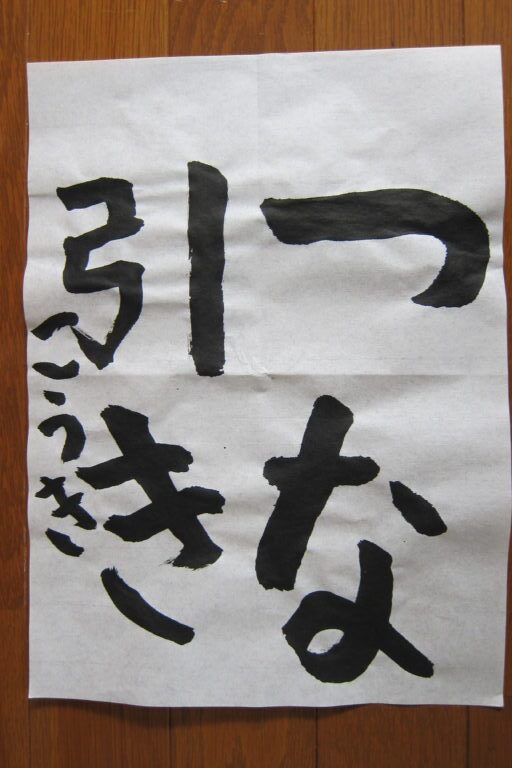 つな
引き
こうき